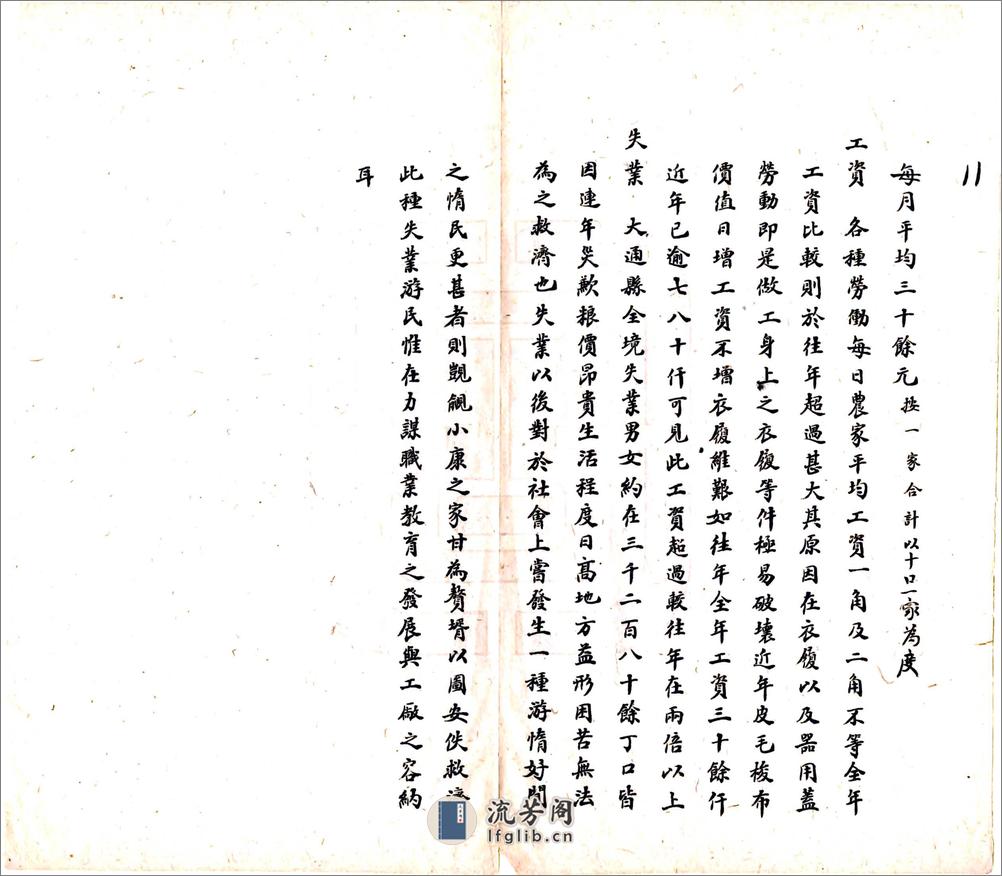 11
每月平均三十餘元按一家合計以十口一家為度
工資　各種勞働每日農家平均工資一角及二角不等全年
工資比較則於往年超過甚大其原因在衣履以及器用蓋
勞動即是做工身上之衣履等件極易破壞近年皮毛梭布
價值日增工資不增衣履維艱如往年全年工資三十餘仟
近年已逾七八十仟可見此工資超過較往年在兩倍以上
失業　大通縣全境失業男女約在三千二百八十餘丁口皆
因連年災歉粮價昂貴生活程度日高地方益形困苦無法
為之救濟也失業以後對於社會上嘗發生一種游惰好閒
之惰民更甚者則覬覦小康之家甘為贅壻以圖安佚救濟
此種失業游民惟在力謀職業教育之發展與工廠之容納
耳
流芳阁
lfglib.cn